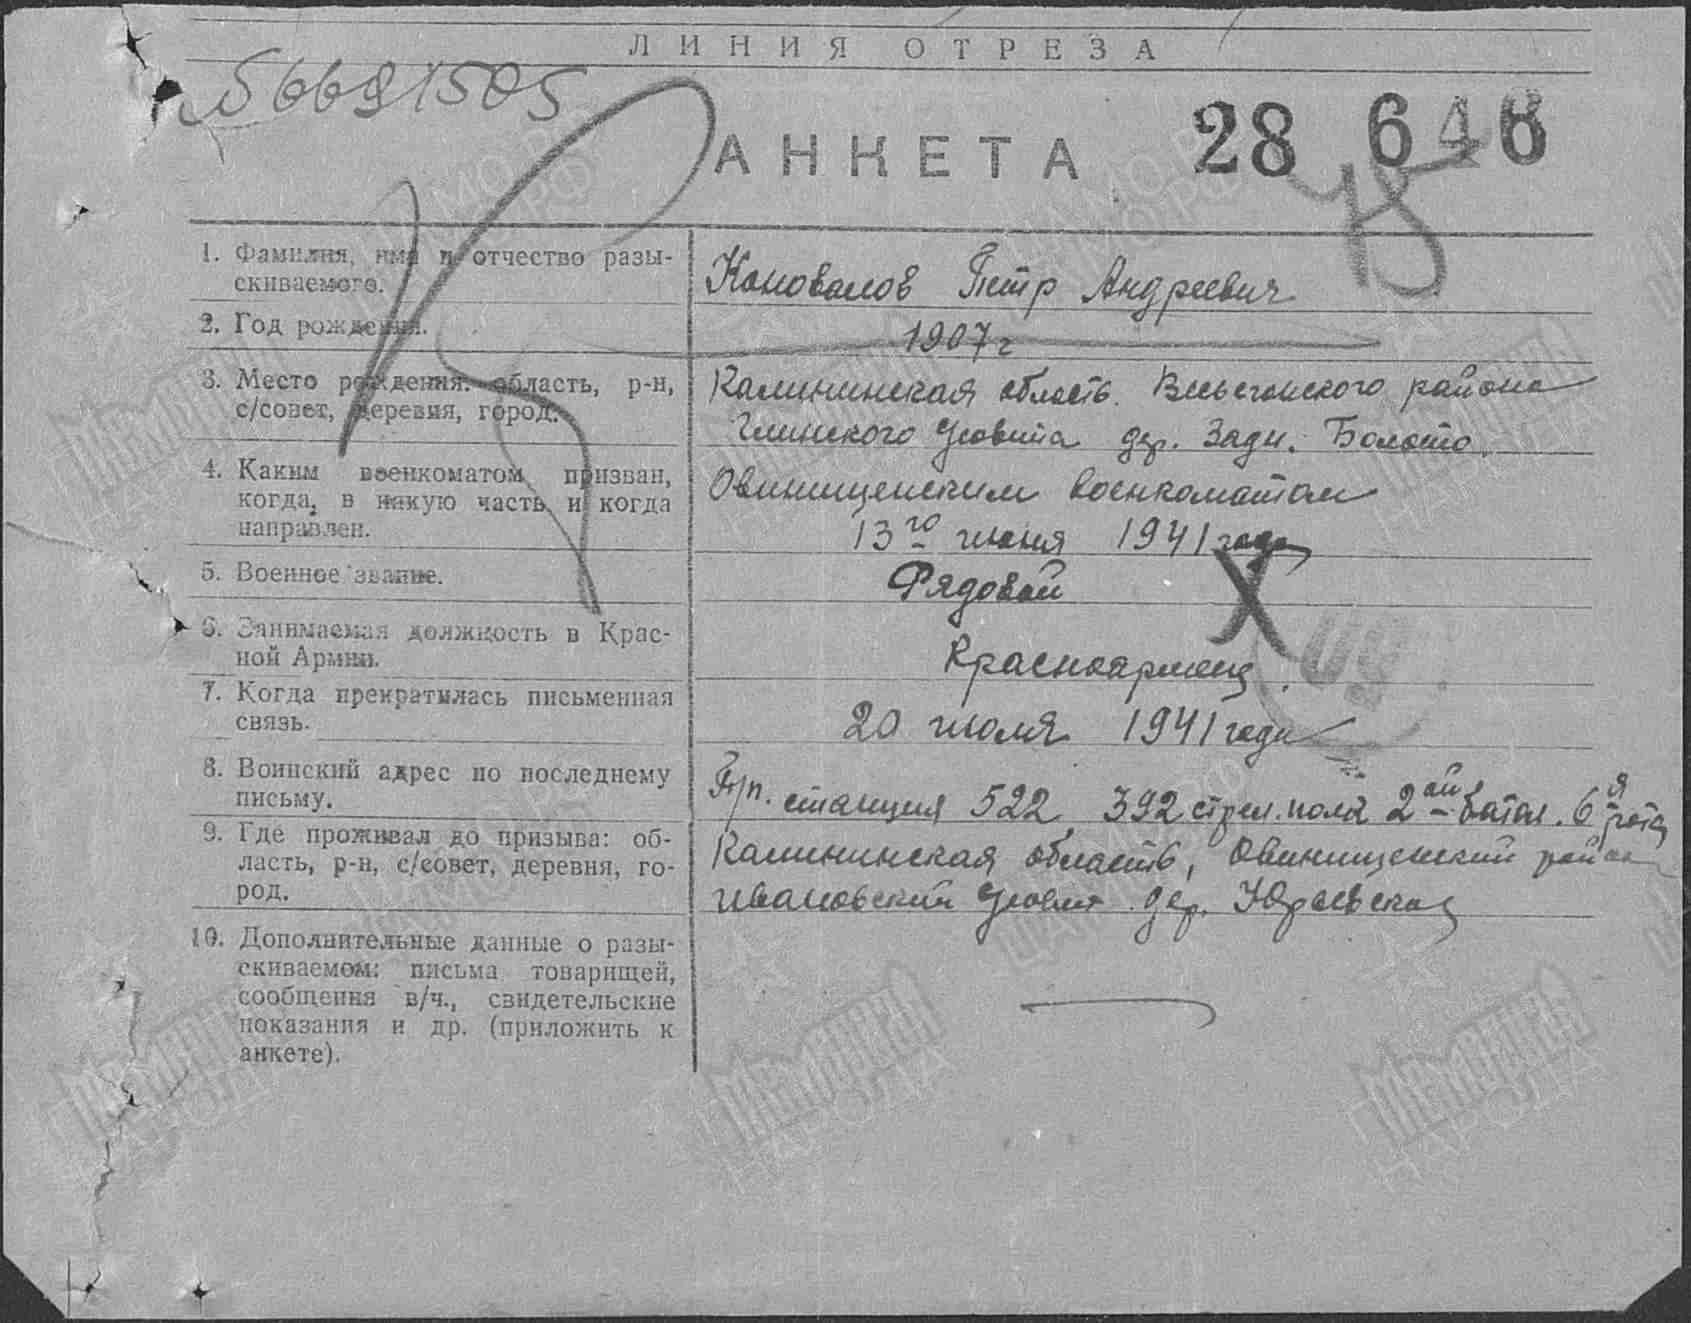 ЛИНИЯ ОТРЕЗА
56691505
АНКЕТА 28 646
1. Фамилия, имя и отчество разы-
скиваемого.
Коновалов Петр Андреевич
2. Год рождения.
1907 г
3. Место рождения: область, р-н,
с/совет, деревня, город.
Калининская область. Весьегонского района
Глинского с/совета дер. Задн. Болото.
4. Каким военкоматом призван,
когда, в какую часть и когда
направлен.
Овинищенским военкоматом
13го июня 1941 года
5. Военное звание.
Рядовой
6. Занимаемая должность в Крас-
ной Армии.
Красноармеец.
7. Когда прекратилась письменная
связь.
20 июля 1941 года
8. Воинский адрес по последнему
письму.
П/п. станция 522 392 стрел. полк 2ой батал. 6я рота
9. Где проживал до призыва: об-
ласть, р-н, с/совет, деревня, го-
род.
Калининская область, Овинищенский район
Ивановский с/совет дер. Юрьевская
10. Дополнительные данные о разы-
скиваемом: письма товарищей,
сообщения в/ч., свидетельские
показания и др. (приложить к
анкете).
МЕМОРИАЛ
НАРОДА
ЦАМО.РФ